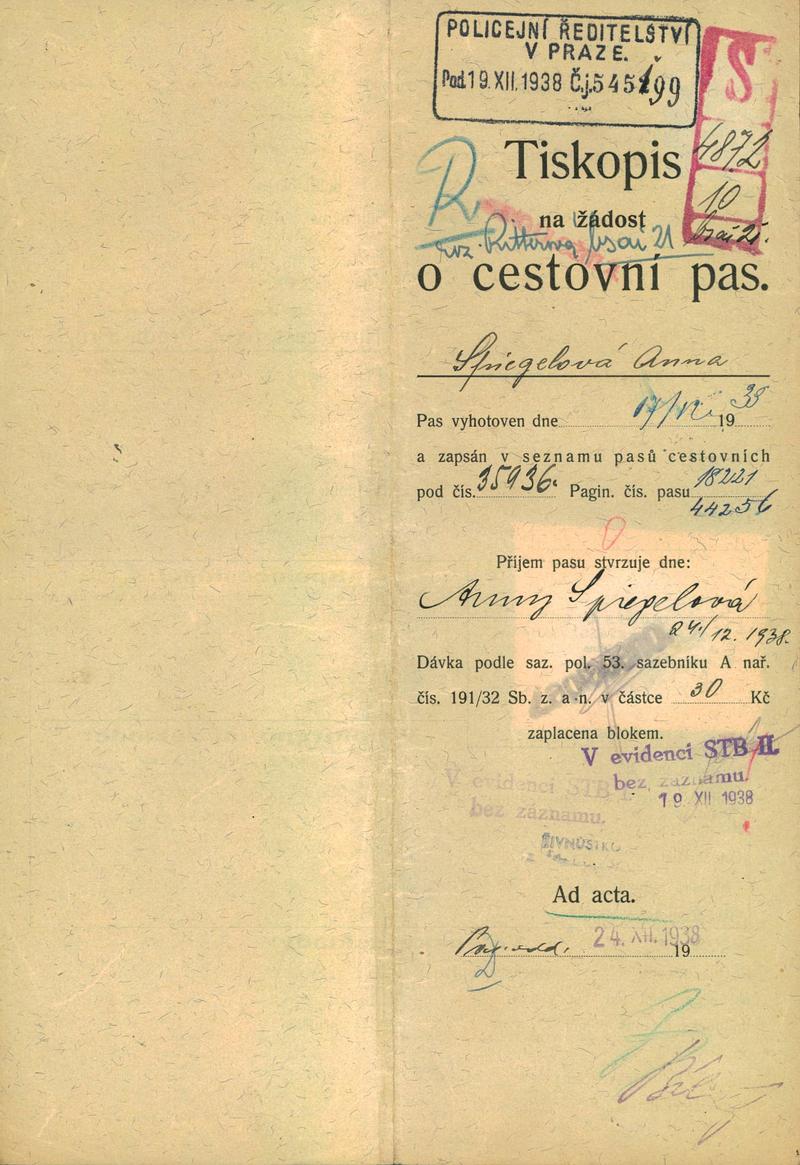 POLICEJNÍ ŘEDITELSTVÍ
V PRAZE.
Pod. 19. XII. 1938 Č.j. 545199
S
4872
10
Tiskopis
na žádost
21
o cestovní pas.
Spiegelová Anna
Pas vyhotoven dne 17/XII 1938
a zapsán v seznamu pasů cestovních
pod čís. 35936. Pagin. čís. pasu 18221
44256
Příjem pasu stvrzuje dne:
Anny Spiegelová
24./12. 1938.
Dávka podle saz. pol. 53. sazebníku A nař.
čís. 191/32 Sb. z. a n. v částce 30 Kč
zaplacena blokem.
V evidenci STB II.
bez záznamu.
19 XII 1938
V evidenci STB
bez záznamu.
Ad acta.
24. XII. 1938
19